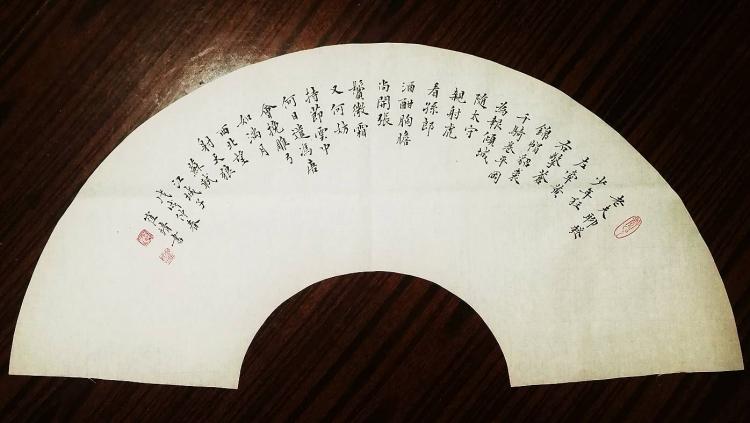 老夫聊發
少年狂
左牽黃
右擎蒼
錦帽貂裘
千騎卷平岡
為報傾城
隨太守
親射虎
看孫郎
酒酣胸膽
尚開張
鬢微霜
又何妨
持節雲中
何日遣馮唐
會挽雕弓
如滿月
西北望
射天狼
蘇軾
江城子
仲春
書